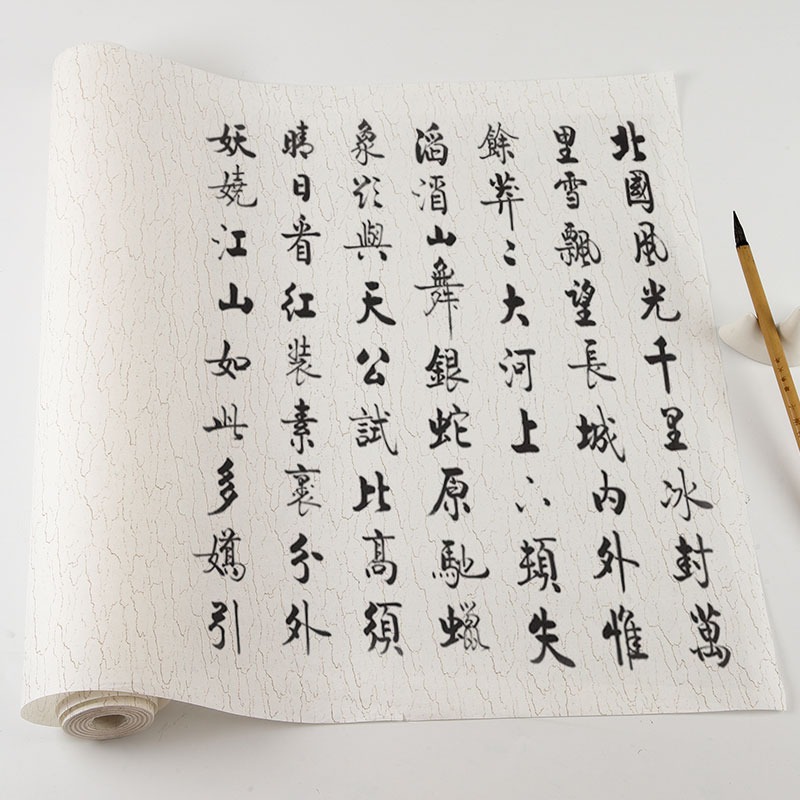 北國風光千里冰封萬
里雪飄望長城內外惟
餘莽〻大河上下頓失
滔滔山舞銀蛇原馳蠟
象欲與天公試比高須
晴日看紅裝素裹分外
妖嬈江山如此多嬌引